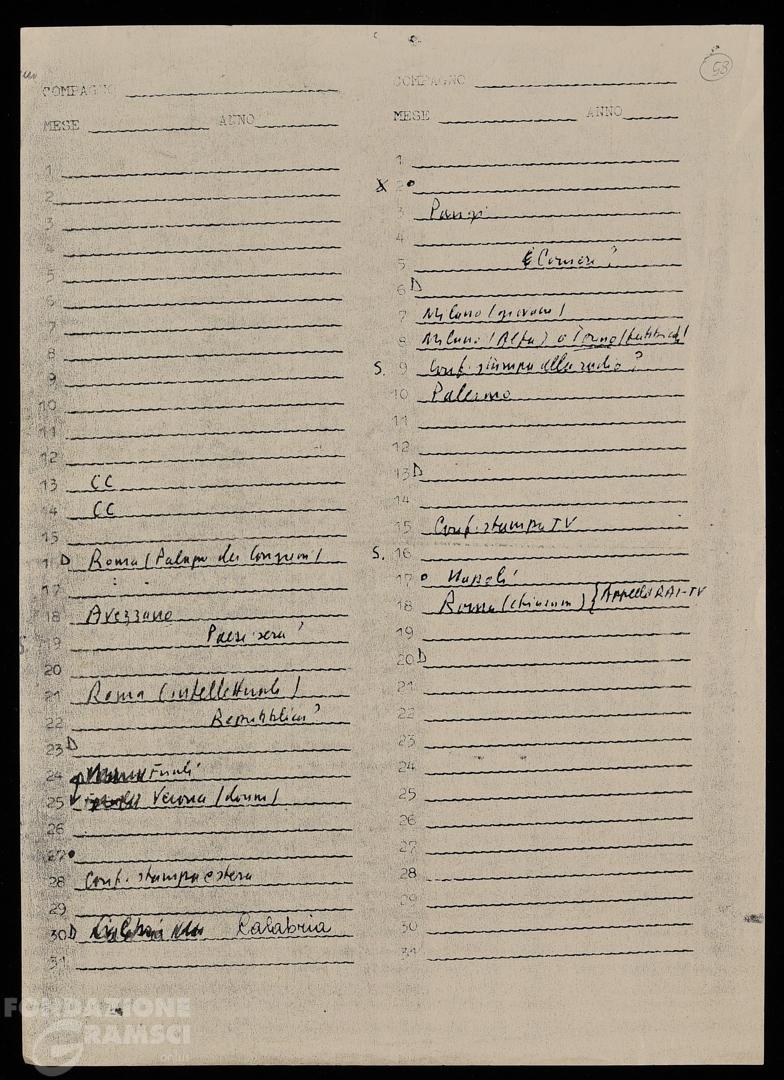 58
COMPAGNO
MESE ANNO
1
2
3
4
5
6
7
8
9
10
11
12
13 CC
14 CC
15
16 D Roma (Palazzo dei Congressi)
17
18 Avezzano
19 Paese sera?
20
21 Roma (intellettuali)
22 Repubblica?
23 D
24 Friuli
25 Verona (donne)
26
27
28 Conf. stampa estera
29
30 D Calabria
31
COMPAGNO
MESE ANNO
1
2
3 Parigi
4
5 Corriere?
6 D
7 Milano (giovani)
8 Milano (Alfa) o Torino
S. 9 Conf. stampa alla radio?
10 Palermo
11
12
13 D
14
15 Conf. stampa TV
S. 16
17 Napoli
18 Roma (chiusura) { Appello RAI-TV
19
20 D
21
22
23
24
25
26
27
28
29
30
31
FONDAZIONE
GRAMSCI
onlus